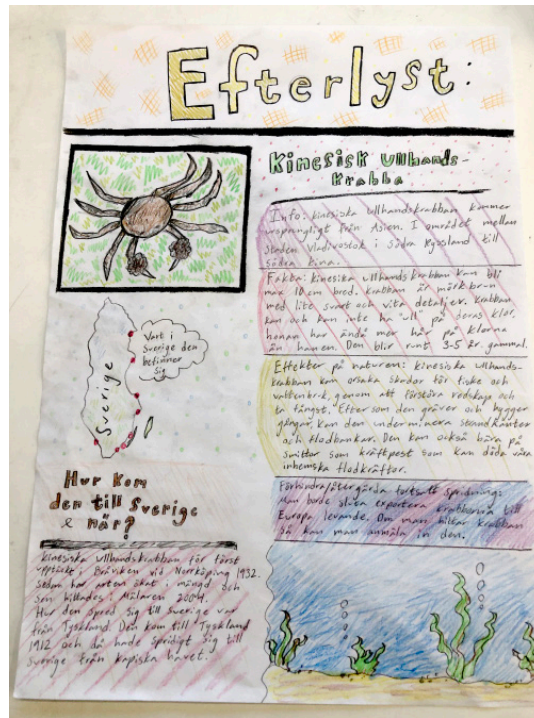 Efterlyst:
Kinesisk Ullhands-
krabba
Info: kinesiska ullhandskrabban kommer
ursprungligt från Asien. I området mellan
staden Vladivostok i södra Ryssland till
södra kina.
Fakta: kinesika ullhandskrabban kan bli
max 10 cm bred. krabban är mörkbrun
med lite svart och vita detaljer. krabban
kan och kan inte ha "ull" på deras klor.
honan har ändå mer hår på klorna
än hanen. Den blir runt 3-5 år gammal.
Effekter på naturen: kinesiska ullhands-
krabban kan orsaka skador för fiske och
vattenbruk, genom att förstöra redskap och
ta fångst. Eftersom den gräver och bygger
gångar kan den underminera strandkanter
och flodbankar. Den kan också bära på
smittor som kräftpest som kan döda våra
inhemska flodkräftor.
Förhindra/åtgärda fortsatt spridning:
Man borde sluta exportera krabborna till
Europa levande. Om man hittar krabban
så kan man anmäla in den.
Vart i
Sverige den
befinner
sig
Sverige
Hur kom
den till Sverige
& när?
kinesiska ullhandskrabban för först
upptäckt i Bråviken vid Norrköping 1932.
sedan har arten ökat i mängd och
som hittades i Mälaren 2004.
Hur den spred sig till sverige var
från Tyskland. Den kom till Tyskland
1912 och då hade spridigt sig till
sverige från kapiska havet.